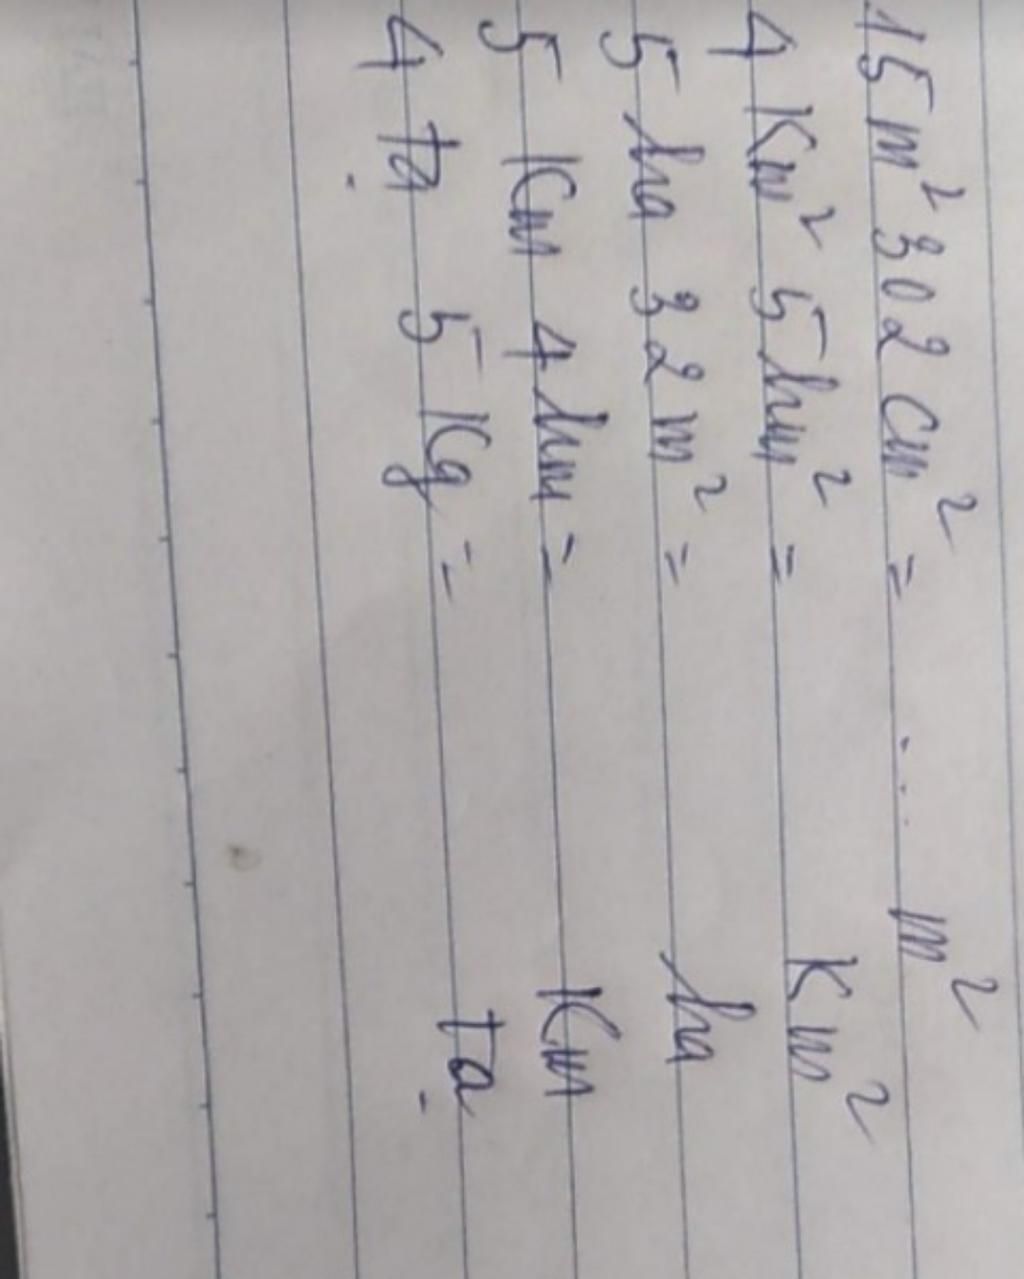 15m² 302 cm² = .... m²
4 Km² 5 hm² = Km²
5 ha 32 m² = ha
5 Km 4 hm = Km
4 tạ 5 Kg = tạ